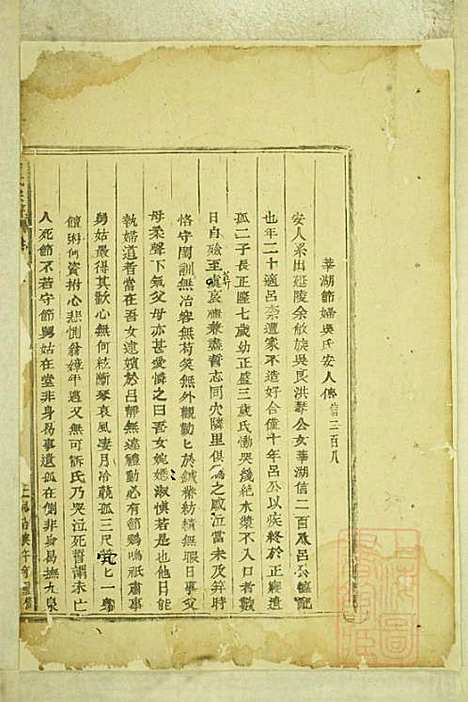 華湖節婦吳氏安人傳 信二百八
安人系出延陵余敏族吳長洪琴公女華湖信二百八呂公
也年二十適呂奈遭家不造好合僅十年呂公以疾終於正寢遺
孤二子長正隆七歲幼正盛三歲氏慟哭幾絕水漿不入口者數
日自殮至葬衰禫兼盡誓志同穴隣里俱為之感泣當未及笄時
恪守閨訓無冶容無苟笑無外觀勤於鍼黹紡績無暇日事父
母柔聲下氣父母亦甚愛憐之曰吾女婉嫕淑慎若是也他日能
執婦道者當在吾女迨嬪於呂舉無違禮動必有節鷄鳴祇肅事
舅姑最得其歡心無何絃斷琴哀風凄月冷藐孤三尺煢煢一
體術何資拊心悲惻翁嫜年邁又無可訴氏乃哭泣死誓謂未亡
人死節不若守節舅姑在堂非身曷事遺孤在側非身曷撫九泉